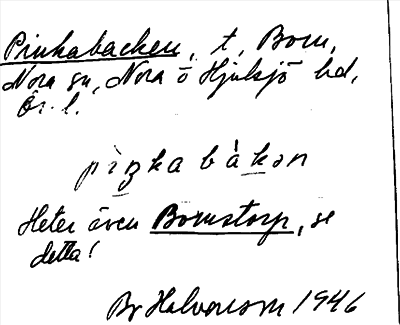 Pinkabacken, t, Born,
Nora sn, Nora o Hjulsjö hd,
Ör. l.
pìŋka bàkən
Heter även Bornstorp, se
detta!
Br Halvorsson 1946